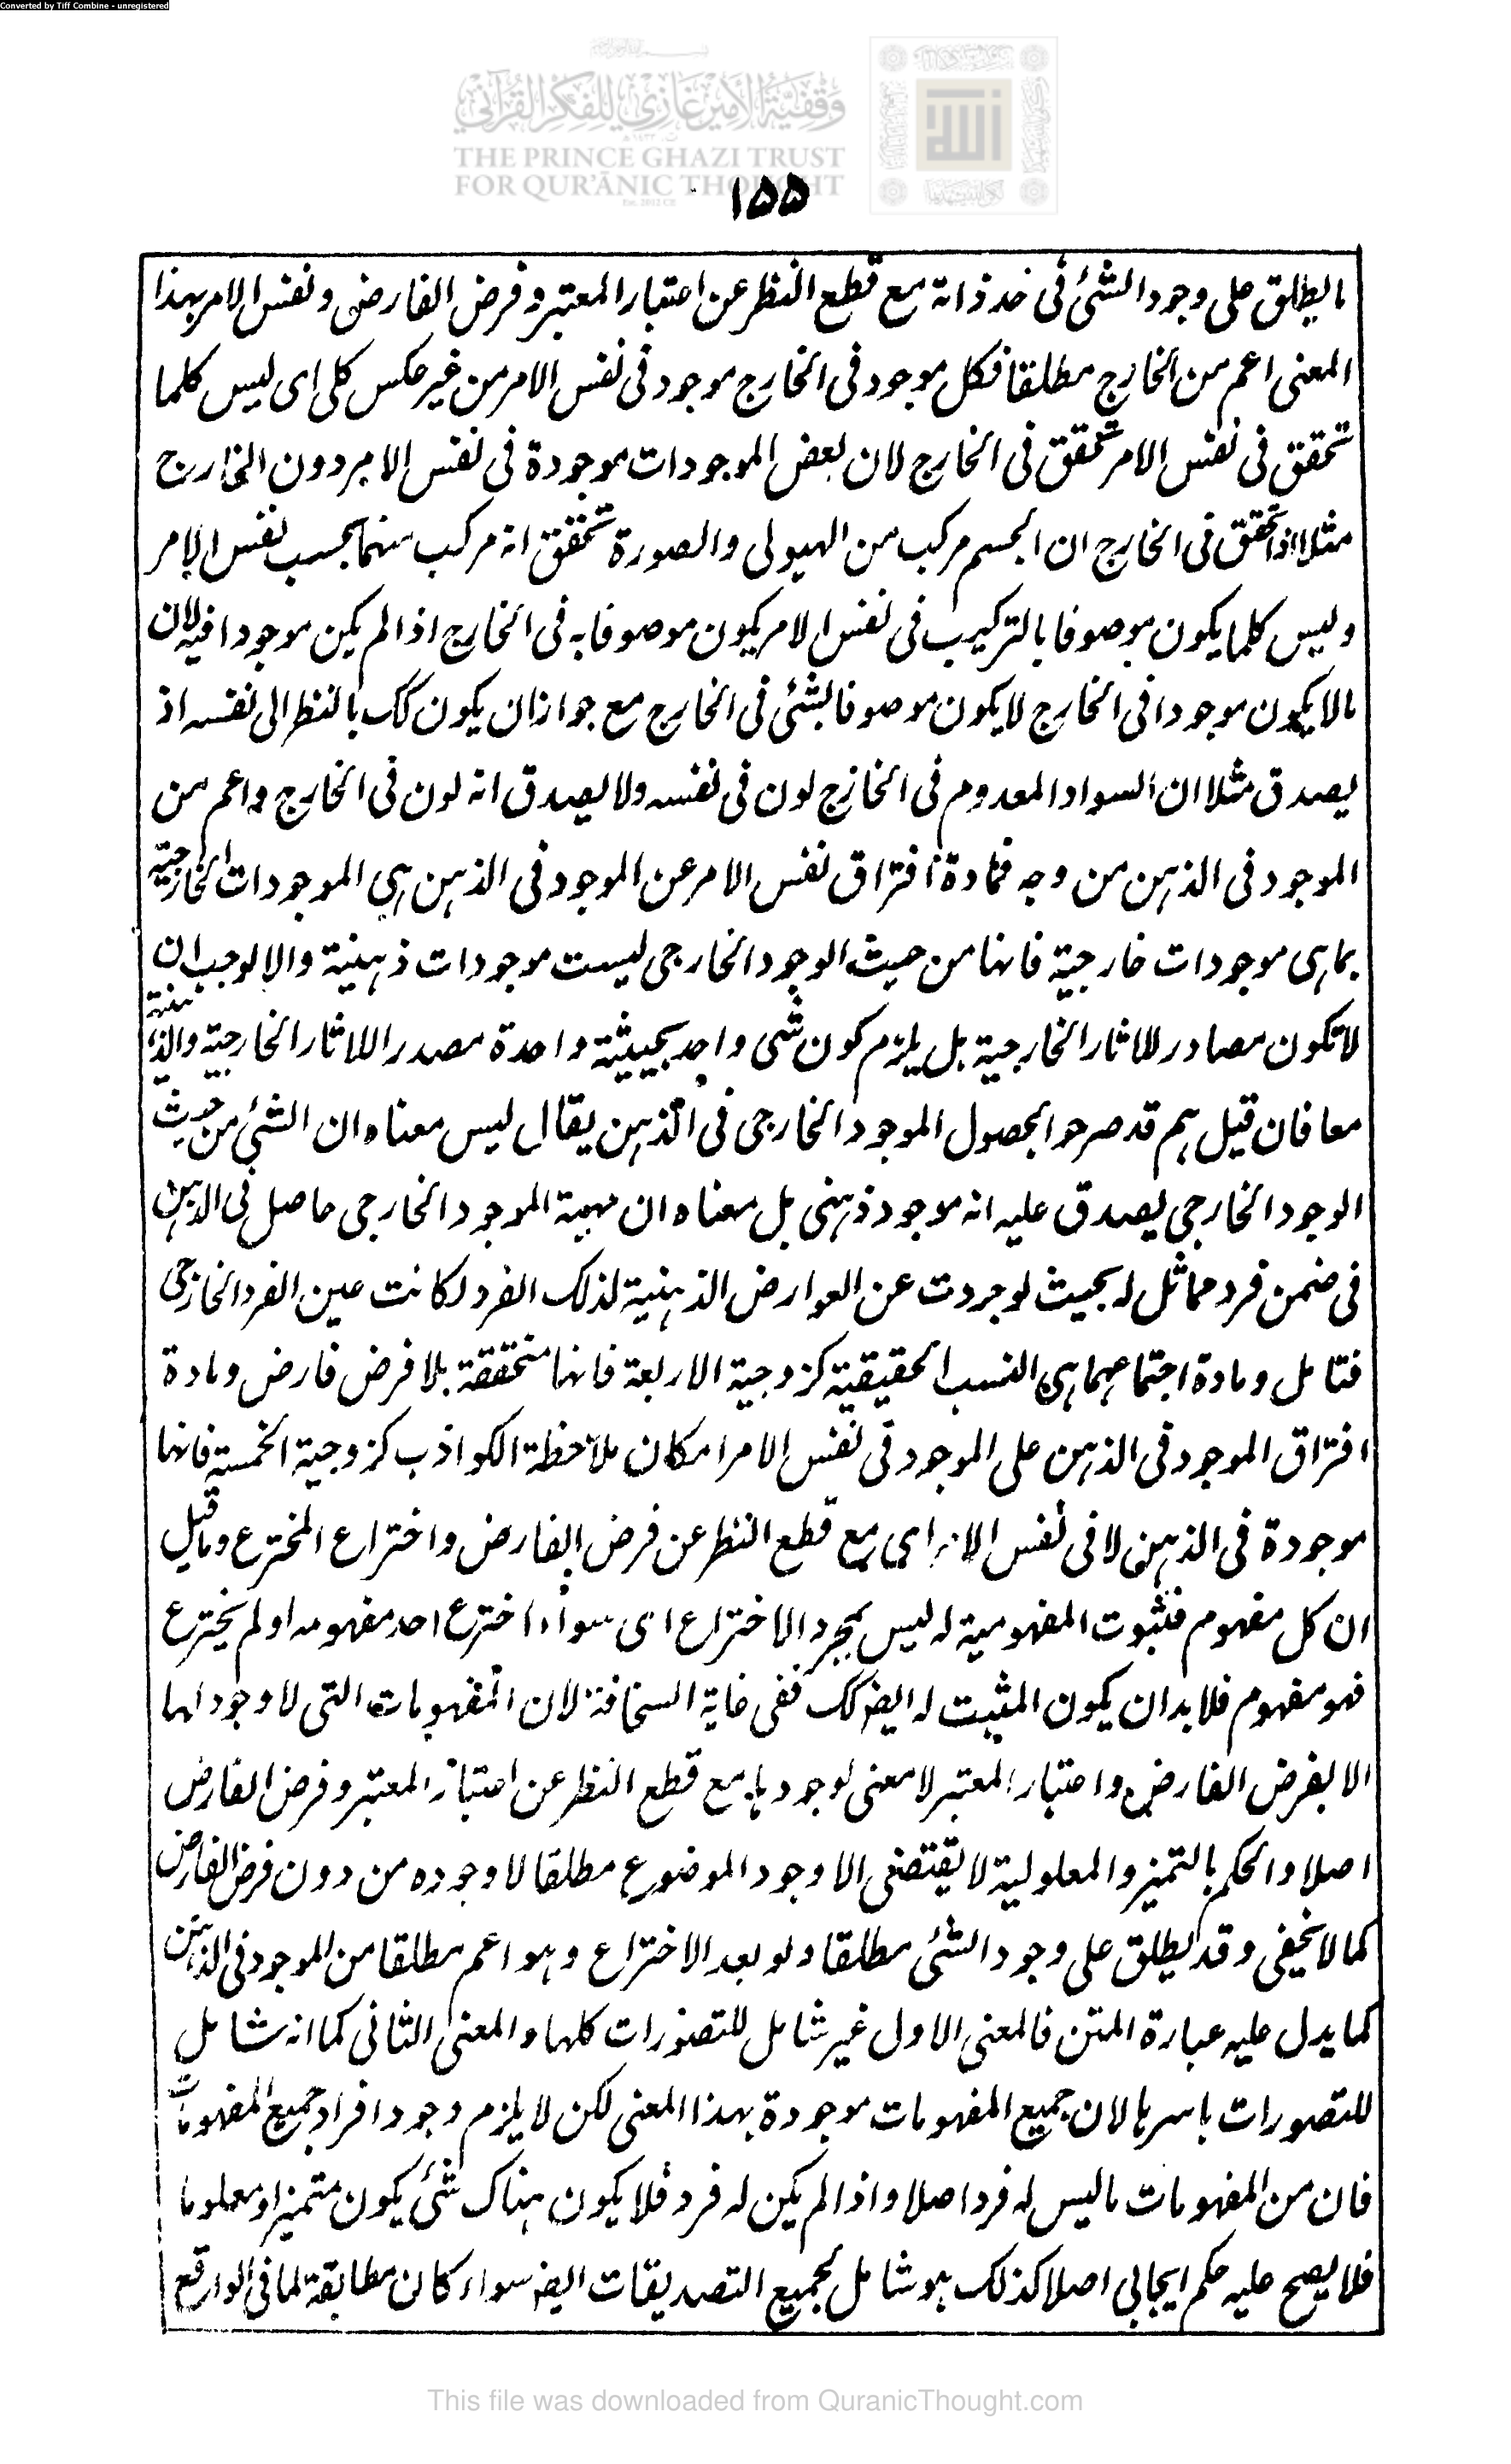 Converted by Tiff Combine - unregistered
وقفية الأمير غازي للفكر القرآني
THE PRINCE GHAZI TRUST
FOR QUR'ĀNIC THOUGHT
Est. 2012 CE
١٥٥
ما يطلق على وجود الشئ فى حد ذاته مع قطع النظر عن اعتبار المعتبر و فرض الفارض و نفس الامر بهذا
المعنى اعم من الخارج مطلقا فكل موجود فى الخارج موجود فى نفس الامر من غير عكس كلى اى ليس كلما
تحقق فى نفس الامر تحقق فى الخارج لان بعض الموجودات موجودة فى نفس الامر دون الخارج
مثلا اذا تحقق فى الخارج ان الجسم مركب من الهيولى والصورة تحقق انه مركب منهما بحسب نفس الامر
وليس كلما يكون موصوفا بالتركيب فى نفس الامر يكون موصوفا به فى الخارج اذا لم يكن موجودا فيه لان
ما لا يكون موجودا فى الخارج لا يكون موصوفا بشئ فى الخارج مع جواز ان يكون كك بالنظر الى نفسه اذ
يصدق مثلا ان السواد المعدوم فى الخارج لون فى نفسه ولا يصدق انه لون فى الخارج واعم من
الموجود فى الذهن من وجه فمادة افتراق نفس الامر عن الموجود فى الذهن هى الموجودات الخارجية
بما هى موجودات خارجية فانها من حيث الوجود الخارجى ليست موجودات ذهنية والا لوجب ان
لا تكون مصادر للاثار الخارجية بل يلزم كون شى واحد بحيثية واحدة مصدر اللاثار الخارجية والذهنية
معا فان قيل هم قد صرحوا بحصول الموجود الخارجى فى الذهن يقال ليس معناه ان الشئ من حيث
الوجود الخارجى يصدق عليه انه موجود ذهنى بل معناه ان مهية الموجود الخارجى حاصل فى الذهن
فى ضمن فرد مماثل له بحيث لو جردت عن العوارض الذهنية لذلك الفرد لكانت عين الفرد الخارجى
فتامل ومادة اجتماعهما هى النسب الحقيقية كزوجية الاربعة فانها متحققة بلا فرض فارض ومادة
افتراق الموجود فى الذهن على الموجود فى نفس الامر امكان ملاحظة الكواذب كزوجية الخمسة فانها
موجودة فى الذهن لا فى نفس الامر اى مع قطع النظر عن فرض الفارض واختراع المخترع وما قيل
ان كل مفهوم فثبوت المفهومية له ليس بمجرد الاختراع اى سواء اخترع احد مفهومه او لم يخترع
فهو مفهوم فلا بد ان يكون المثبت له ايضا كك ففى غاية السخافة لان المفهومات التى لا وجود لها
الا بفرض الفارض واعتبار المعتبر لا معنى لوجودها مع قطع النظر عن اعتبار المعتبر وفرض الفارض
اصلا والحكم بالتميز والمعلولية لا يقتضى الا وجود الموضوع مطلقا لا وجوده من دون فرض الفارض
كما لا يخفى وقد يطلق على وجود الشئ مطلقا ولو بعد الاختراع وهو اعم مطلقا من الموجود فى الذهن
كما يدل عليه عبارة المتن فالمعنى الاول غير شامل للتصورات كلها والمعنى الثانى كما انه شامل
للتصورات باسرها لان جميع المفهومات موجودة بهذا المعنى لكن لا يلزم وجود افراد جميع المفهومات
فان من المفهومات ما ليس له فرد اصلا واذا لم يكن له فرد فلا يكون هناك شئ يكون متميزا ومعلوما
فلا يصح عليه حكم ايجابى اصلا كذلك هو شامل لجميع التصديقات ايضا سواء كان مطابقة لما فى الواقع
This file was downloaded from QuranicThought.com